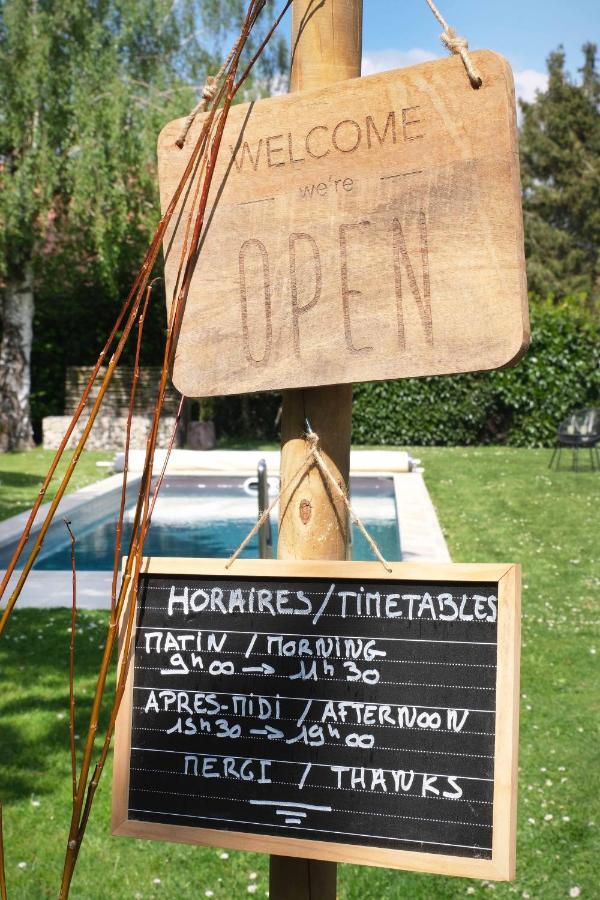 WELCOME
we're
OPEN
HORAIRES/TIMETABLES
MATIN / MORNING
9h00 → 11h30
APRES-MIDI / AFTERNOON
15h30 → 19h00
MERCI / THANKS